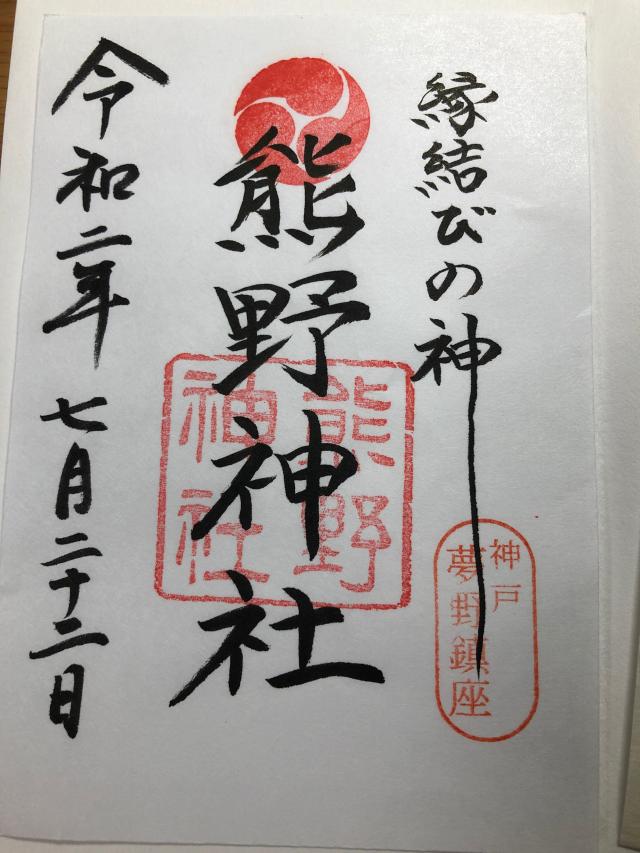 縁結びの神
神戸
夢野鎮座
熊野神社
熊野
神社
令和二年七月二十二日